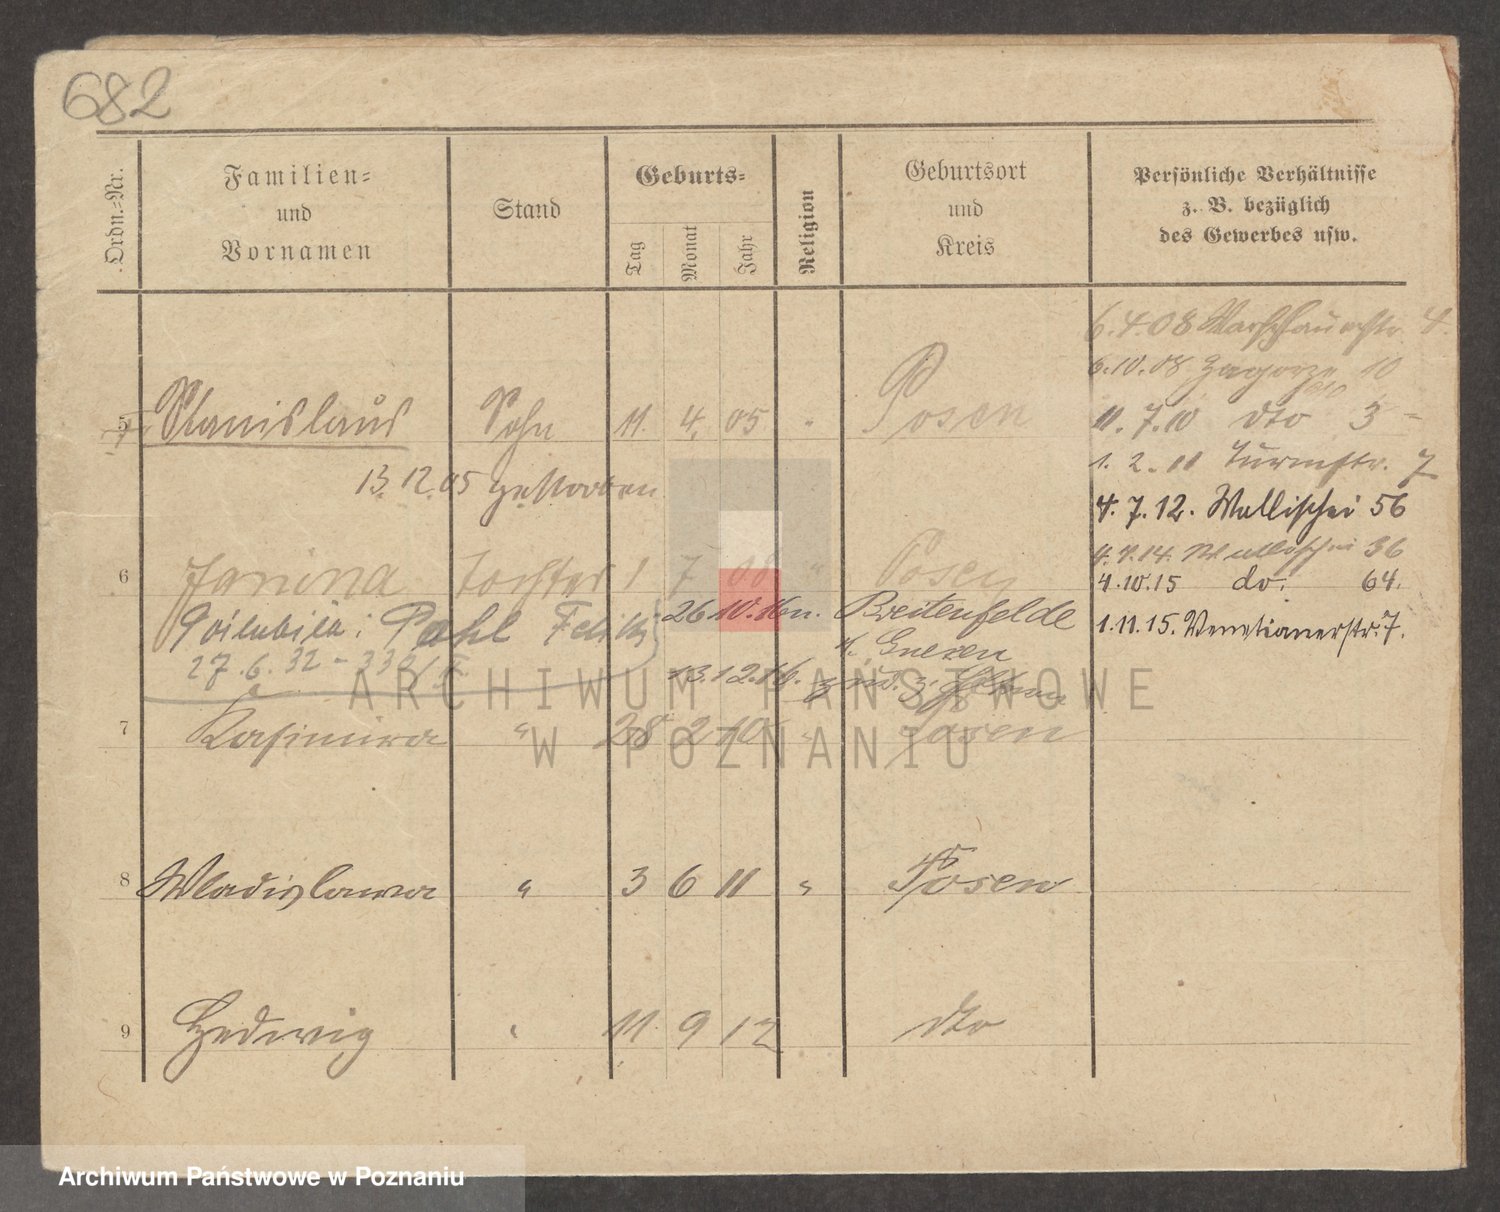 682
Ordn.-Nr. Familien- und Vornamen Stand Geburts- Tag Monat Jahr Religion Geburtsort und Kreis Persönliche Verhältnisse z. B. bezüglich des Gewerbes usw.
6.4.08 Warschauerstr. 4.
6.10.08 Zagorze 10
5 Stanislaus Sohn 11. 4. 05 " Posen
11. 7.10 dto 3
1. 2. 11 Turmstr. 7
13.12.05 gestorben
4. 7. 12. Wallischei 56
4.4.14. Wallischei 36
6 Janina Tochter 1 7 08 " Posen
4.10.15 do. 64.
Pahl Felix 26 10.16 n. Breitenfelde
1.11.15. Venetianerstr. 7.
K. Gnesen
27.6.32
13.12.16. zur.
7 Kasimira " 28 2 10 " Posen
8 Wladislawa " 3 6 11 " Posen
9 Hedwig " 11 9 12 dto
ARCHIWUM PAŃSTWOWE
W POZNANIU
Archiwum Państwowe w Poznaniu